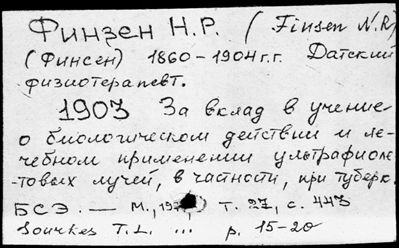 Финзен Н.Р. (Finsen N.R)
(Финсен) 1860-1904 г.г. Датский
физиотерапевт.
1903 За вклад в учение
о биологическом действии и ле-
чебном применении ультрафиоле
-товых лучей, в частности, при туберк.
БСЭ. — М., Т. 27, с. 443
Sourkes T.L. ... p. 15-20